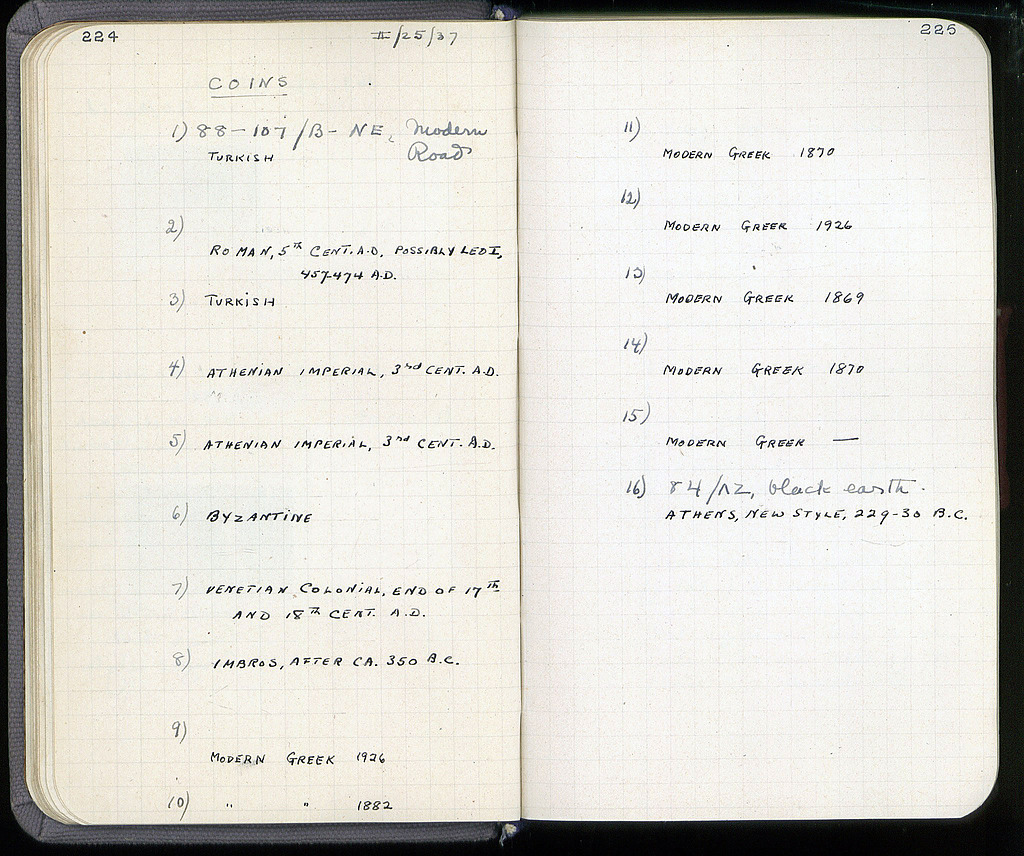 224
II/25/37
COINS
1) 88-107/B-NE, Modern
Road
TURKISH
2)
ROMAN, 5TH CENT. A.D., POSSIBLY LEO I,
457-474 A.D.
3) TURKISH
4) ATHENIAN IMPERIAL, 3rd CENT. A.D.
5) ATHENIAN IMPERIAL, 3rd CENT. A.D.
6) BYZANTINE
7) VENETIAN COLONIAL, END OF 17TH
AND 18TH CENT. A.D.
8) IMBROS, AFTER CA. 350 B.C.
9)
MODERN GREEK 1926
10) " " 1882
225
11)
MODERN GREEK 1870
12)
MODERN GREEK 1926
13)
MODERN GREEK 1869
14)
MODERN GREEK 1870
15)
MODERN GREEK —
16) 84/ΛΖ, black earth.
ATHENS, NEW STYLE, 229-30 B.C.